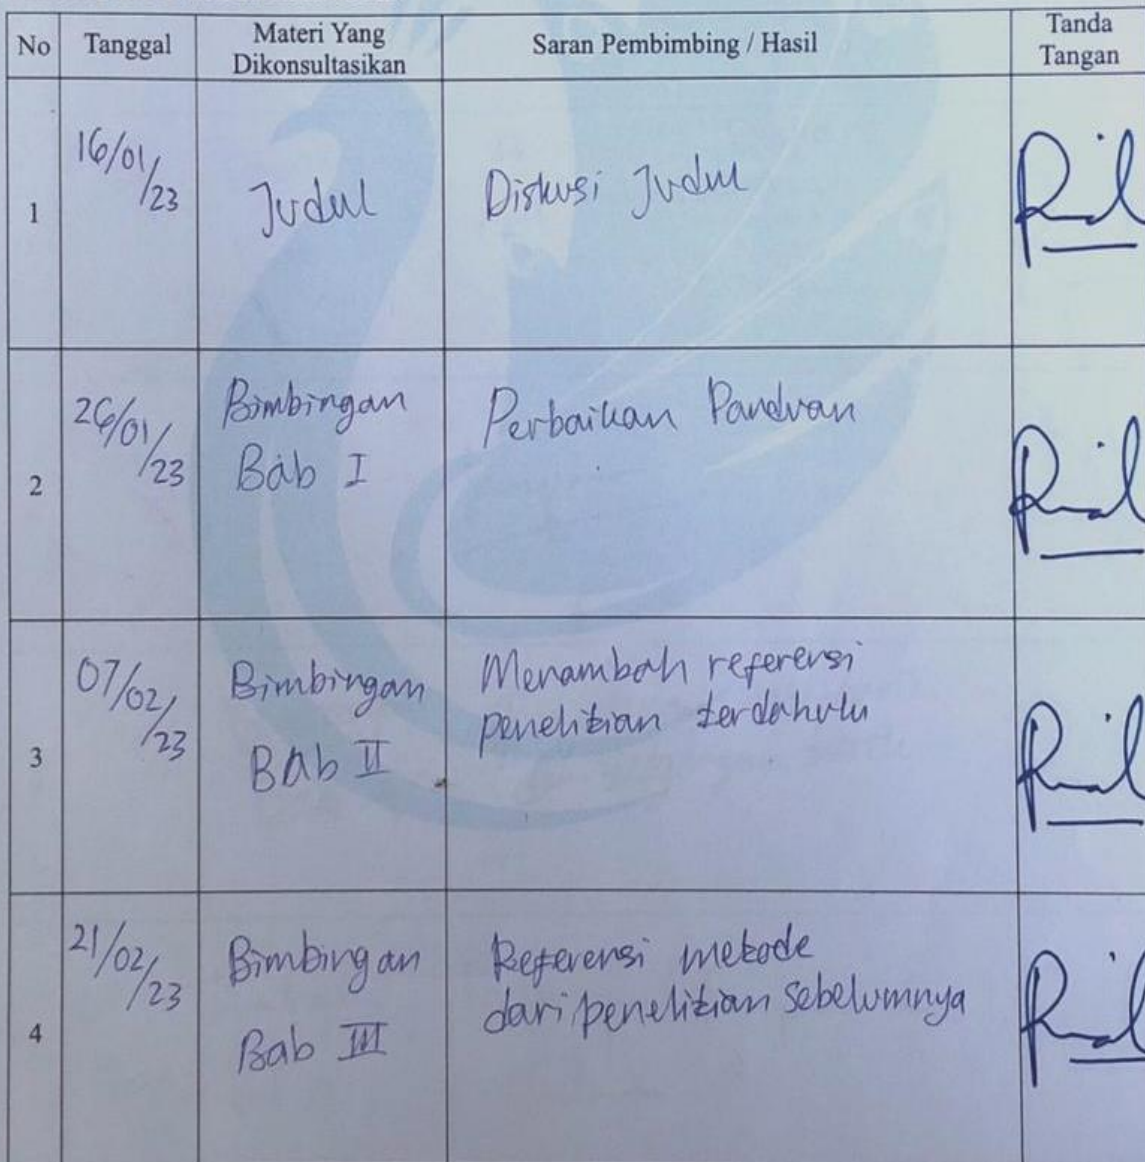 No
Tanggal
Materi Yang
Dikonsultasikan
Saran Pembimbing / Hasil
Tanda
Tangan
1
16/01/23
Judul
Diskusi Judul
2
26/01/23
Bimbingan
Bab I
Perbaikan Panduan
3
07/02/23
Bimbingan
BAb II
Menambah referensi
penelitian terdahulu
4
21/02/23
Bimbingan
Bab III
Referensi metode
dari penelitian sebelumnya